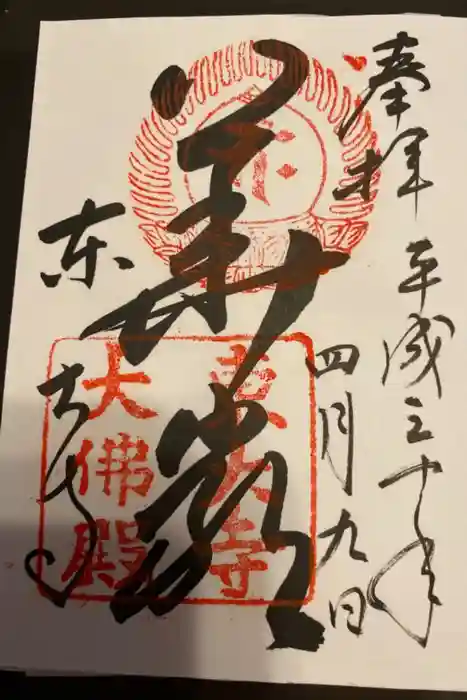 奉拝 平成三十年
四月九日
華厳
東大寺
東大寺
大佛殿